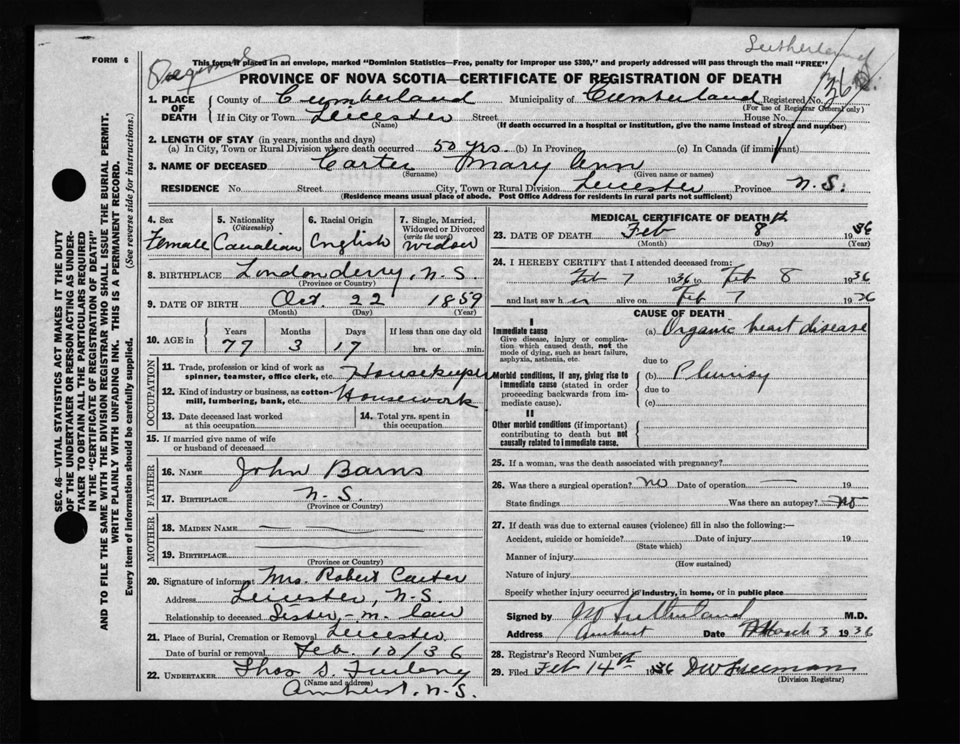 FORM 6
Sutherland
This form if placed in an envelope, marked "Dominion Statistics—Free, penalty for improper use $300," and properly addressed will pass through the mail "FREE"
PROVINCE OF NOVA SCOTIA—CERTIFICATE OF REGISTRATION OF DEATH
1. PLACE OF DEATH
County of Cumberland Municipality of Cumberland Registered No.
(For use of Registrar General only)
If in City or Town Leicester Street House No.
(Name) (If death occurred in a hospital or institution, give the name instead of street and number)
2. LENGTH OF STAY (in years, months and days)
(a) In City, Town or Rural Division where death occurred 50 yrs. (b) In Province (c) In Canada (if immigrant)
3. NAME OF DECEASED Carter Mary Ann
(Surname) (Given name or names)
RESIDENCE No. Street City, Town or Rural Division Leicester Province N.S.
(Residence means usual place of abode. Post Office Address for residents in rural parts not sufficient)
4. Sex
Female
5. Nationality
(Citizenship)
Canadian
6. Racial Origin
English
7. Single, Married, Widowed or Divorced
(write the word)
Widow
8. BIRTHPLACE Londonderry, N.S.
(Province or Country)
9. DATE OF BIRTH Oct. 22 1859
(Month) (Day) (Year)
10. AGE in
Years Months Days If less than one day old
77 3 17 hrs. or min.
OCCUPATION
11. Trade, profession or kind of work as
spinner, teamster, office clerk, etc. Housekeeper
12. Kind of industry or business, as cotton-
mill, lumbering, bank, etc. Housework
13. Date deceased last worked
at this occupation
14. Total yrs. spent in
this occupation
15. If married give name of wife
or husband of deceased
FATHER
16. NAME John Barns
17. BIRTHPLACE N.S.
(Province or Country)
MOTHER
18. MAIDEN NAME
19. BIRTHPLACE
(Province or Country)
20. Signature of informant Mrs. Robert Carter
Address Leicester, N.S.
Relationship to deceased Sister-in-law
21. Place of Burial, Cremation or Removal Leicester
Date of burial or removal Feb. 10/36
22. UNDERTAKER Thos S.
(Name and address)
Amherst, N.S.
MEDICAL CERTIFICATE OF DEATH
23. DATE OF DEATH Feb 8th 1936
(Month) (Day) (Year)
24. I HEREBY CERTIFY that I attended deceased from:
Feb 7 1936 to Feb 8 1936
and last saw her alive on Feb 7 1936
CAUSE OF DEATH
I
Immediate cause
Give disease, injury or complica-
tion which caused death, not the
mode of dying, such as heart failure,
asphyxia, asthenia, etc.
(a) Organic heart disease
due to
Morbid conditions, if any, giving rise to
immediate cause (stated in order
proceeding backwards from im-
mediate cause).
(b) Pleurisy
due to
(c)
II
Other morbid conditions (if important)
contributing to death but not
causally related to immediate cause.
25. If a woman, was the death associated with pregnancy?
26. Was there a surgical operation? No Date of operation — 19
State findings Was there an autopsy? No
27. If death was due to external causes (violence) fill in also the following:—
Accident, suicide or homicide? Date of injury 19
(State which)
Manner of injury
(How sustained)
Nature of injury
Specify whether injury occurred in industry, in home, or in public place
Signed by Sutherland M.D.
Address Amherst Date March 3 1936
28. Registrar's Record Number
29. Filed Feb 14th 1936 D W Freeman
(Division Registrar)
SEC. 46—VITAL STATISTICS ACT MAKES IT THE DUTY
OF THE UNDERTAKER OR PERSON ACTING AS UNDER-
TAKER TO OBTAIN ALL THE PARTICULARS REQUIRED
IN THE "CERTIFICATE OF REGISTRATION OF DEATH"
AND TO FILE THE SAME WITH THE DIVISION REGISTRAR WHO SHALL ISSUE THE BURIAL PERMIT.
WRITE PLAINLY WITH UNFADING INK. THIS IS A PERMANENT RECORD.
Every item of information should be carefully supplied. (See reverse side for instructions.)